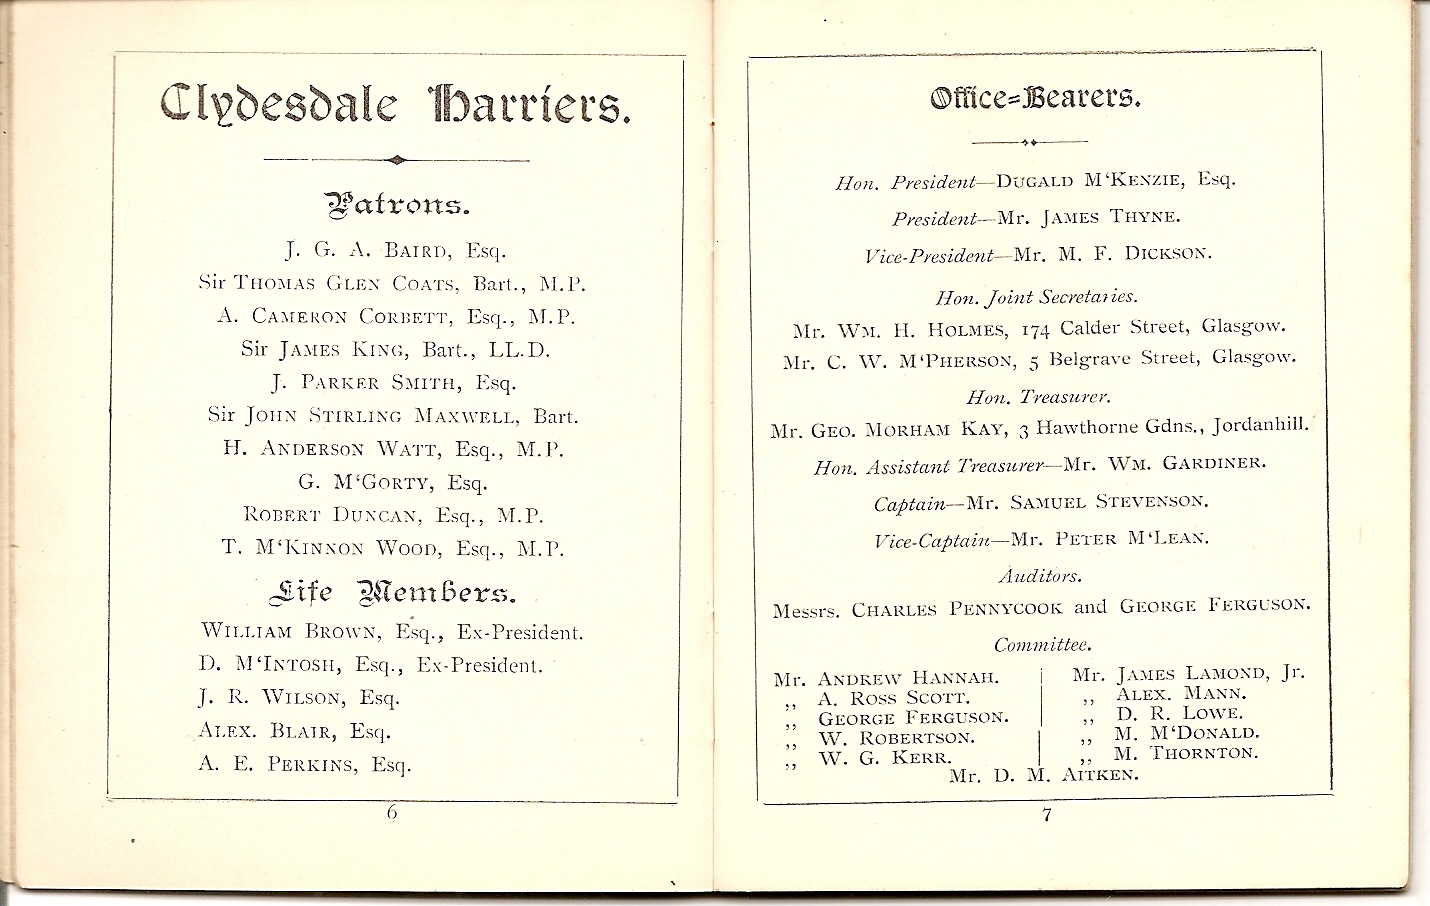 Clydesdale Harriers.
Patrons.
J. G. A. BAIRD, Esq.
Sir THOMAS GLEN COATS, Bart., M.P.
A. CAMERON CORBETT, Esq., M.P.
Sir JAMES KING, Bart., LL.D.
J. PARKER SMITH, Esq.
Sir JOHN STIRLING MAXWELL, Bart.
H. ANDERSON WATT, Esq., M.P.
G. M‘GORTY, Esq.
ROBERT DUNCAN, Esq., M.P.
T. M‘KINNON WOOD, Esq., M.P.
Life Members.
WILLIAM BROWN, Esq., Ex-President.
D. M‘INTOSH, Esq., Ex-President.
J. R. WILSON, Esq.
ALEX. BLAIR, Esq.
A. E. PERKINS, Esq.
6
Office=Bearers.
Hon. President—DUGALD M‘KENZIE, Esq.
President—Mr. JAMES THYNE.
Vice-President—Mr. M. F. DICKSON.
Hon. Joint Secretaries.
Mr. WM. H. HOLMES, 174 Calder Street, Glasgow.
Mr. C. W. M‘PHERSON, 5 Belgrave Street, Glasgow.
Hon. Treasurer.
Mr. GEO. MORHAM KAY, 3 Hawthorne Gdns., Jordanhill.
Hon. Assistant Treasurer—Mr. WM. GARDINER.
Captain—Mr. SAMUEL STEVENSON.
Vice-Captain—Mr. PETER M‘LEAN.
Auditors.
Messrs. CHARLES PENNYCOOK and GEORGE FERGUSON.
Committee.
Mr. ANDREW HANNAH.
,, A. ROSS SCOTT.
,, GEORGE FERGUSON.
,, W. ROBERTSON.
,, W. G. KERR.
Mr. JAMES LAMOND, Jr.
,, ALEX. MANN.
,, D. R. LOWE.
,, M. M‘DONALD.
,, M. THORNTON.
Mr. D. M. AITKEN.
7